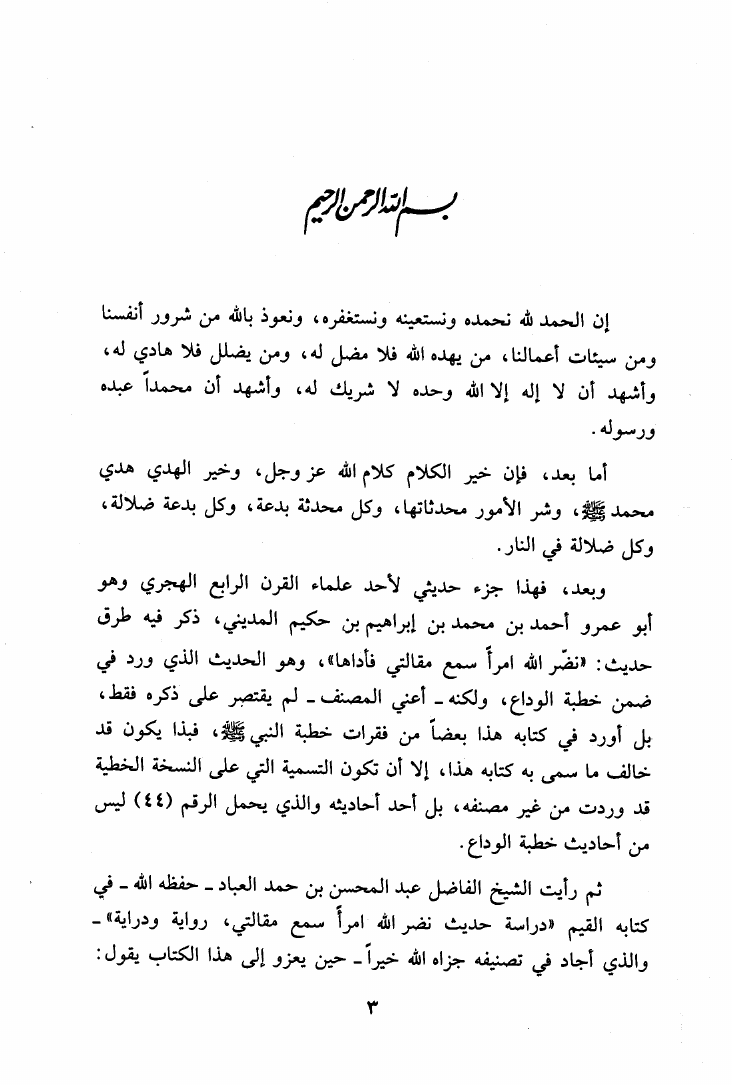 بسم الله الرحمن الرحيم
إن الحمد لله نحمده ونستعينه ونستغفره، ونعوذ بالله من شرور أنفسنا
ومن سيئات أعمالنا، من يهده الله فلا مضل له، ومن يضلل فلا هادي له،
وأشهد أن لا إله إلا الله وحده لا شريك له، وأشهد أن محمداً عبده
ورسوله.
أما بعد، فإن خير الكلام كلام الله عز وجل، وخير الهدي هدي
محمد ﷺ، وشر الأمور محدثاتها، وكل محدثة بدعة، وكل بدعة ضلالة،
وكل ضلالة في النار.
وبعد، فهذا جزء حديثي لأحد علماء القرن الرابع الهجري وهو
أبو عمرو أحمد بن محمد بن إبراهيم بن حكيم المديني، ذكر فيه طرق
حديث: «نضّر الله امرأً سمع مقالتي فأداها»، وهو الحديث الذي ورد في
ضمن خطبة الوداع، ولكنه ـ أعني المصنف ـ لم يقتصر على ذكره فقط،
بل أورد في كتابه هذا بعضاً من فقرات خطبة النبي ﷺ، فبذا يكون قد
خالف ما سمى به كتابه هذا، إلا أن تكون التسمية التي على النسخة الخطية
قد وردت من غير مصنفه، بل أحد أحاديثه والذي يحمل الرقم (٤٤) ليس
من أحاديث خطبة الوداع.
ثم رأيت الشيخ الفاضل عبد المحسن بن حمد العباد ـ حفظه الله ـ في
كتابه القيم «دراسة حديث نضر الله امرأً سمع مقالتي، رواية ودراية» ـ
والذي أجاد في تصنيفه جزاه الله خيراً ـ حين يعزو إلى هذا الكتاب يقول:
٣